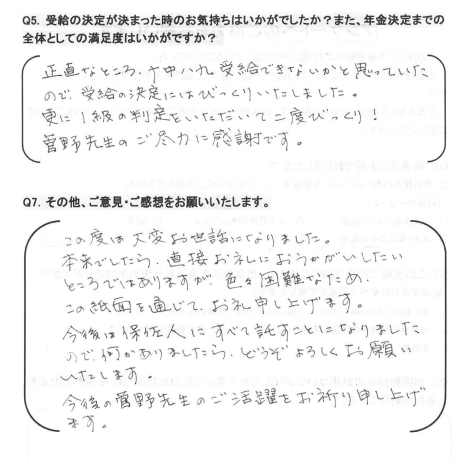 Q5. 受給の決定が決まった時のお気持ちはいかがでしたか？また、年金決定までの
全体としての満足度はいかがですか？
正直なところ、十中八九受給できないかと思っていた
ので、受給の決定にはびっくりいたしました。
更に1級の判定をいただいて二度びっくり！
菅野先生のご尽力に感謝です。
Q7. その他、ご意見・ご感想をお願いいたします。
この度は大変お世話になりました。
本来でしたら、直接お礼におうかがいしたい
ところではありますが、色々困難なため、
この紙面を通じて、お礼申し上げます。
今後は保佐人にすべて託すことになりました
ので、何かありましたら、どうぞよろしくお願い
いたします。
今後の菅野先生のご活躍をお祈り申し上げ
ます。